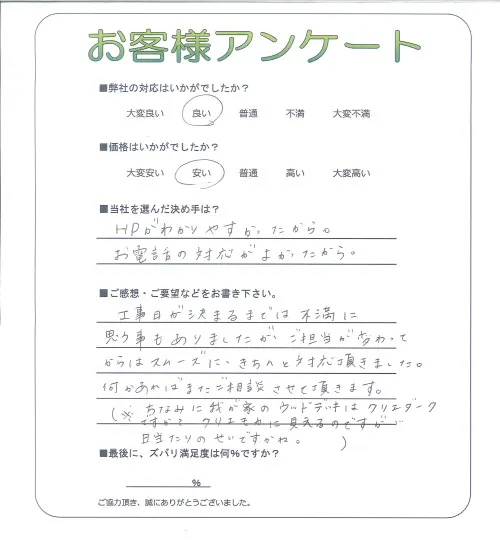 お客様アンケート
■弊社の対応はいかがでしたか？
大変良い 良い 普通 不満 大変不満
■価格はいかがでしたか？
大変安い 安い 普通 高い 大変高い
■当社を選んだ決め手は？
HPがわかりやすかったから。
お電話の対応がよかったから。
■ご感想・ご要望などをお書き下さい。
工事日が決まるまでは不満に
思う事もありましたが、ご担当が変わって
からはスムーズに、きちんと対応頂きました。
何かあればまたご相談させて頂きます。
(※ ちなみに我が家のウッドデッキはクリエダーク
ですか？ クリエモカに見えるのですが
日当たりのせいですかね。 )
■最後に、ズバリ満足度は何％ですか？
％
ご協力頂き、誠にありがとうございました。